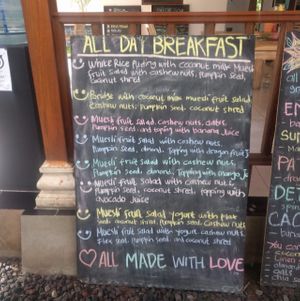 ALL DAY BREAKFAST
White Rice Puding with coconut milk Muesli
fruit Salad with cashew nuts, Pumpkin seed,
coconut shred
Bridge with coconut milk muesli fruit salad
cashew nuts, pumpkin seed coconut shred
Muesli fruit salad, cashew nuts, dates,
Pumpkin seed, and toping with banana Juice
Muesli fruit salad with cashew nuts,
Pumpkin seed, almond, Topping with dragon fruit J
Muesli fruit salad with cashew nuts,
Pumpkin seeds, almond, Topping with orange Ju
Muesli fruit salad with cashew nuts,
pumpkin seed, coconut shred, topping with
Avocado Juice
Muesli fruit salad yogurt with
seed coconut shred, Pumpkin seed, Cashew nuts
Muesli fruit salad with yogurt, cashew nuts,
Flex seed, Pumpkin seed, and coconut shred
ALL MADE WITH LOVE